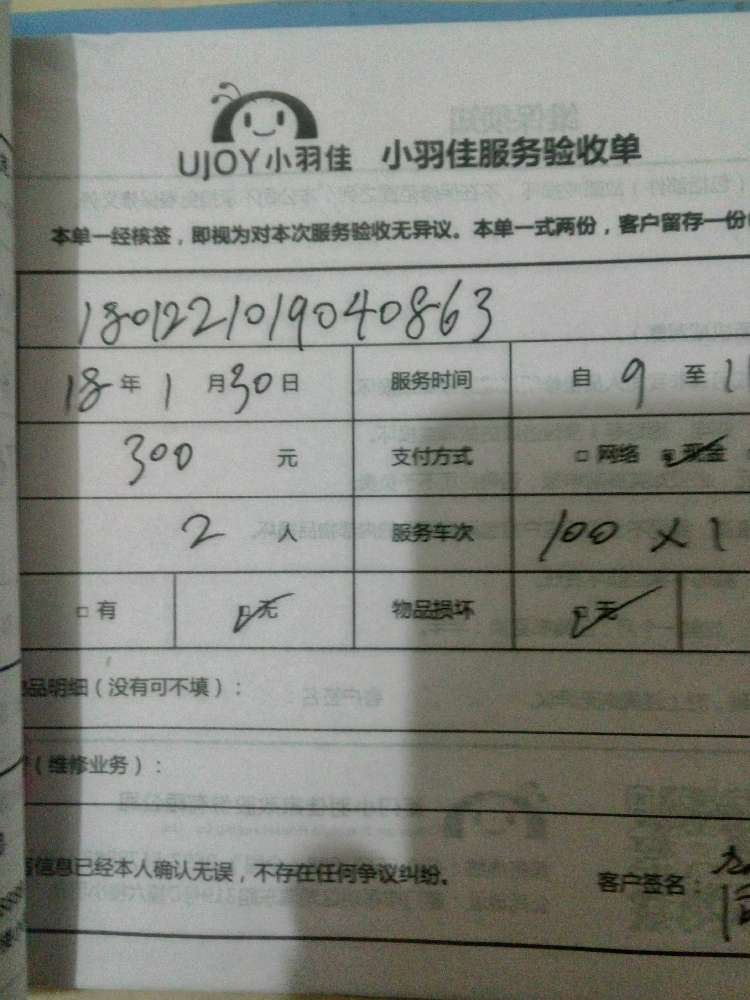 UJOY小羽佳 小羽佳服务验收单
本单一经核签，即视为对本次服务验收无异议。本单一式两份，客户留存一份
180122101904 0863
18年1月30日 服务时间 自9至1
300元 支付方式 □网络 ☑现金
2人 服务车次 100×1
□有 ☑无 物品损坏 ☑无
品明细（没有可不填）：
（维修业务）：
信息已经本人确认无误，不存在任何争议纠纷。 客户签名：